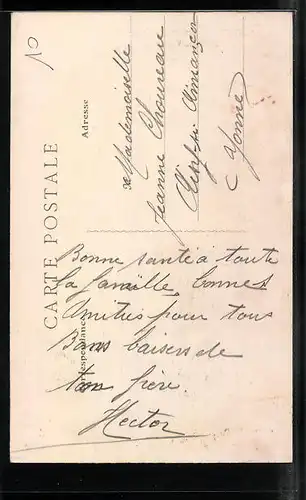 10
CARTE POSTALE
Correspondance
Adresse
Bonne santé à toute
la famille, bonnes
Amitiés pour tous
Bons baisers de
ton frère
Hector
Mademoiselle
Jeanne
Yonne